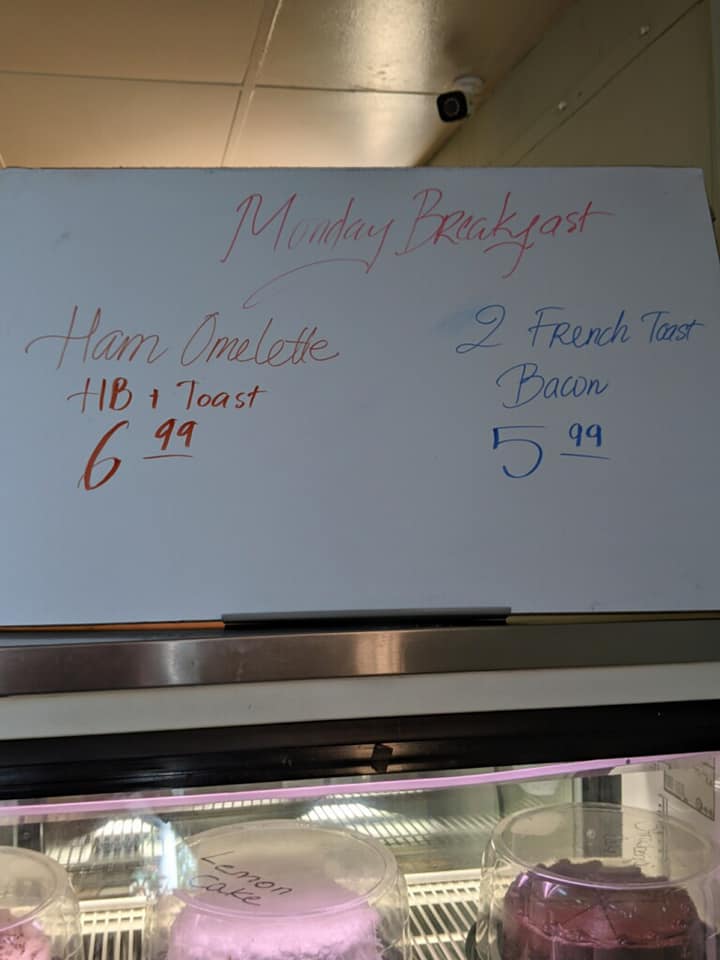 Monday Breakfast
Ham Omelette
HB + Toast
6 99
2 French Toast
Bacon
5 99
Lemon
Cake